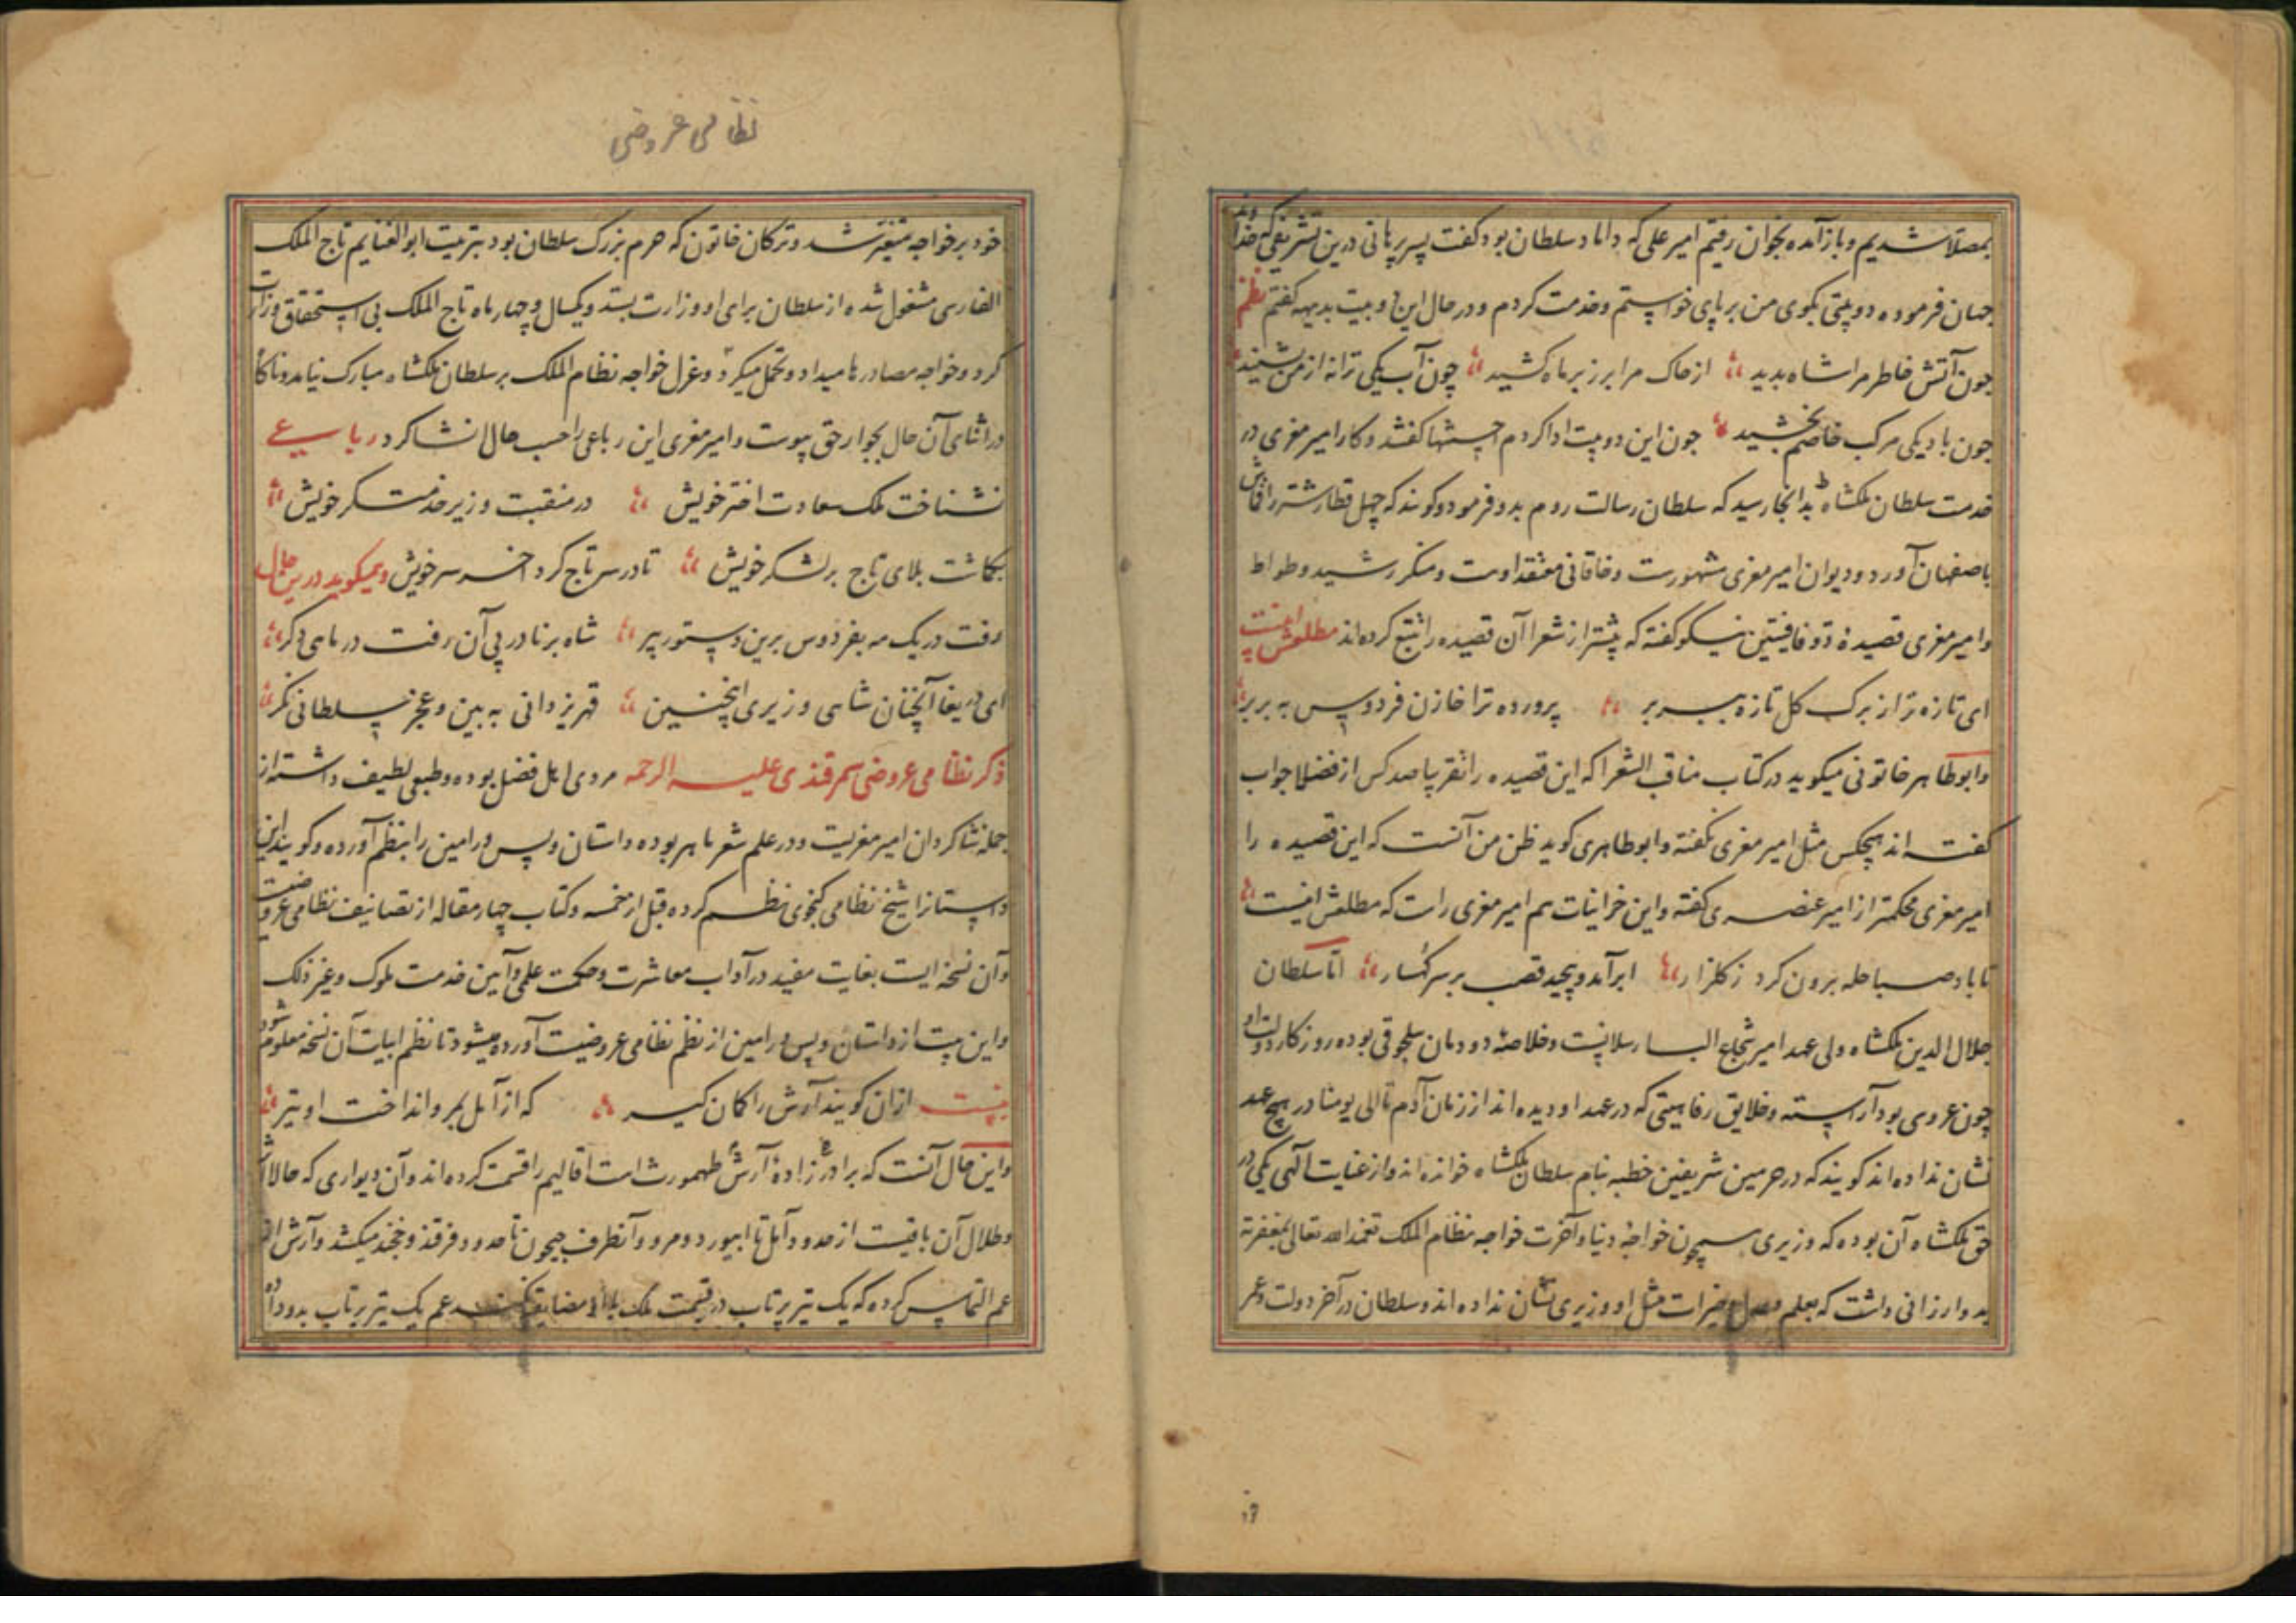 بمصلا شدیم و باز آمده بخوان رفتیم امیر علی که داماد سلطان بود گفت پسر برهانی درین تشریفی که خداوند
جهان فرموده دو بیتی بکوی من بر پای خواستم و خدمت کردم و در حال این دو بیت بدیهه کفتم نظم
چون آتش خاطر مرا شاه بدید از خاک مرا بر زبر ماه کشید چون آب یکی ترانه از من بشنید
چون باد یکی مرکب خاصم بخشید چون این دو بیت ادا کردم احسنتها کفتند و کار امیر معزی در
خدمت سلطان ملکشاه بدانجا رسید که سلطان رسالت روم بدو فرمود و کویند که چهل قطار شتر را قماش
باصفهان آورد و دیوان امیر معزی مشهورست و خاقانی معتقد اوست و منکر رشید وطواط
و امیر معزی قصیدهٔ ذو قافیتین نیکو کفته که بیشتر از شعرا آن قصیده را تتبع کرده‌اند مطلعش اینست
ای تازه تر از برک کل تازه ببر بر پرورده ترا خازن فردوس به بر بر
و ابوطاهر خاتونی میکوید در کتاب مناقب الشعرا که این قصیده را تقریبا صد کس از فضلا جواب
کفته اند هیچکس مثل امیر معزی نکفته و ابوطاهر می کوید ظن من آنست که این قصیده را
امیر معزی محکمتر از امیر عنصری کفته و این خزانیات هم امیر معزی راست که مطلعش اینست
تا باد صبا حله برون کرد ز کلزار ابر آمد و پیچید قصب بر سر کهسار اما سلطان
جلال الدین ملکشاه ولی عهد امیر شجاع الب ارسلانیست و خلاصهٔ دودمان سلجوقی بوده روزکار دولت او
چون عروسی بود آراسته و خلایق رفاهیتی که در عهد او دیده اند از زمان آدم تا الی یومنا در هیچ عهد
نشان نداده اند کویند که در حرمین شریفین خطبه بنام سلطان ملکشاه خوانده اند و از عنایت الهی یکی در
حق ملکشاه آن بوده که وزیری همچون خواجهٔ دنیا و آخرت خواجه نظام الملک تغمده الله تعالی بمغفرته
بدو ارزانی داشت که بعلم و عدل و خیرات مثل او وزیری نشان نداده اند و سلطان در آخر دولت و عمر
نظامی عروضی
خود بر خواجه متغیر شد و ترکان خاتون که حرم بزرک سلطان بود بتربیت ابوالغنایم تاج الملک
الفارسی مشغول شده از سلطان برای او وزارت بستد و یکسال و چهار ماه تاج الملک بی استحقاق وزارت
کرد و خواجه مصادرها میداد و تحمل میکرد و عزل خواجه نظام الملک بر سلطان ملکشاه مبارک نیامد و ناکاه
در اثنای آن حال بجوار حق پیوست و امیر معزی این رباعی را حسب حال انشا کرد رباعی
نشناخت ملک سعادت اختر خویش در منقبت وزیر خدمتکر خویش
بکماشت بلای تاج بر لشکر خویش تا در سر تاج کرد افسر سر خویش و هم میکوید درین حال
رفت در یک مه بفردوس برین دستور پیر شاه برنا در پی آن رفت در ماهی دکر
ای دریغا آنچنان شاهی وزیری اینچنین قهر یزدانی به بین و عجز سلطانی نکر
ذکر نظامی عروضی سمرقندی علیه الرحمه مردی اهل فضل بوده و طبعی لطیف داشته از
جمله شاکردان امیر معزیست و در علم شعر ماهر بوده داستان ویس و رامین را بنظم آورده و کویند این
داستانرا شیخ نظامی کنجوی نظم کرده قبل از خمسه و کتاب چهار مقاله از تصانیف نظامی عروضیست
و آن نسخه ایست بغایت مفید در آداب معاشرت و حکمت علمی و آیین خدمت ملوک و غیر ذلک
و این بیت از داستان ویس و رامین از نظم نظامی عروضیست آورده میشود تا نظم ابیات آن نسخه معلوم شود
بیت ازان کویند آرش را کمان کیر که از آمل بمرو انداخت او تیر
و این حال آنست که برادرزادهٔ آرش طهمورث است اقالیم را قسمت کرده اند و آن دیواری که حالا آثار
و طلال آن باقیست از حدود آمل تا ابیورد و مرو و آنطرف جیحون تا حدود فرقند و خجند میکشد و آرش از
عم التماس کرده که یک تیر پرتاب در قسمت ملک با او مضایقه نکند عم یک تیر پرتاب بدو داد